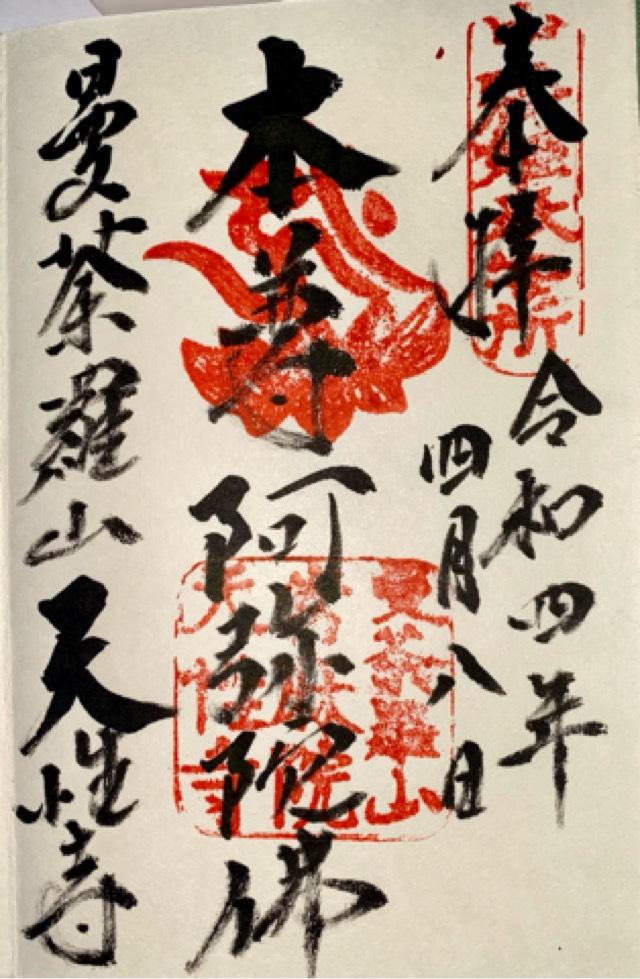 奉拝
令和四年
四月八日
本尊 阿弥陀佛
曼荼羅山 天性寺
曼荼羅山
天性寺